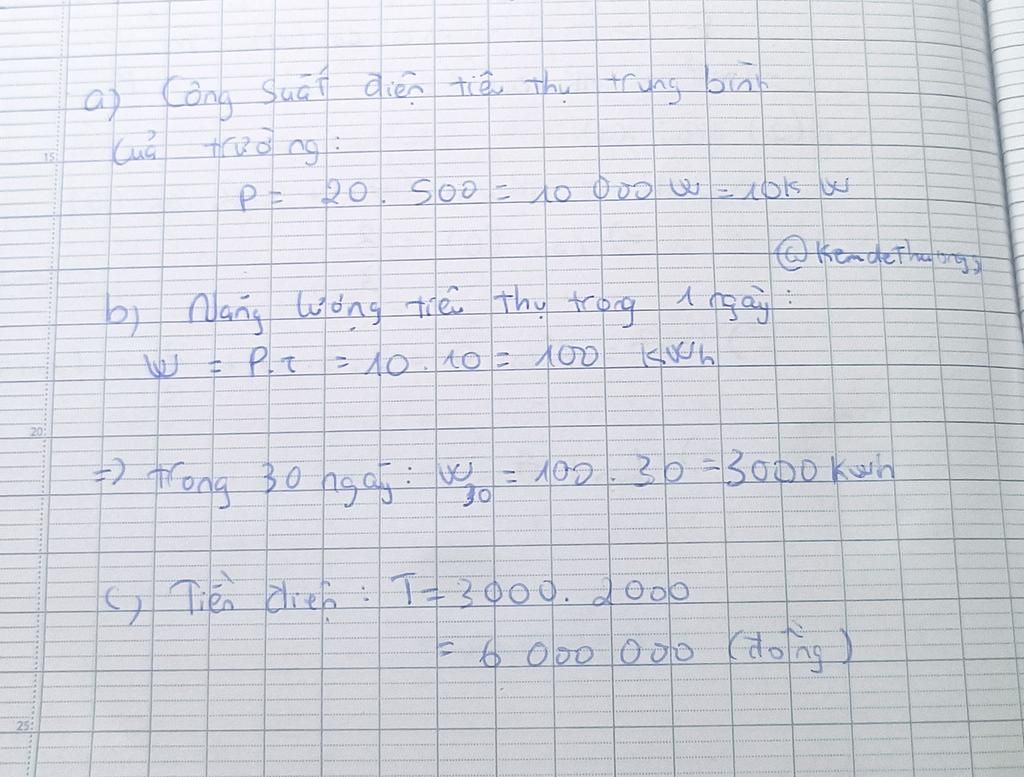 a) Công suất điện tiêu thụ trung bình
của trường:
P = 20. 500 = 10 000 W = 10k W
@Kemdethuongg
b) Năng lượng tiêu thụ trong 1 ngày:
W = P.t = 10.10 = 100 KWh
=> trong 30 ngày: W30 = 100.30 = 3000 Kwh
c, Tiền điện: T = 3000.2000
= 6 000 000 (đồng)
15
20
25